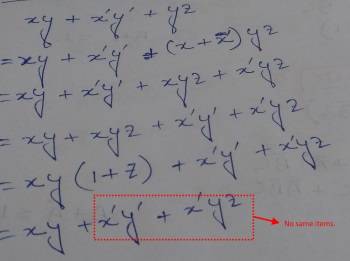 xy + x'y' + yz
= xy + x'y' + (x + x') yz
= xy + x'y' + xyz + x'yz
= xy + xyz + x'y' + x'yz
= xy (1+z) + x'y' + x'yz
= xy + x'y' + x'yz
No same items.